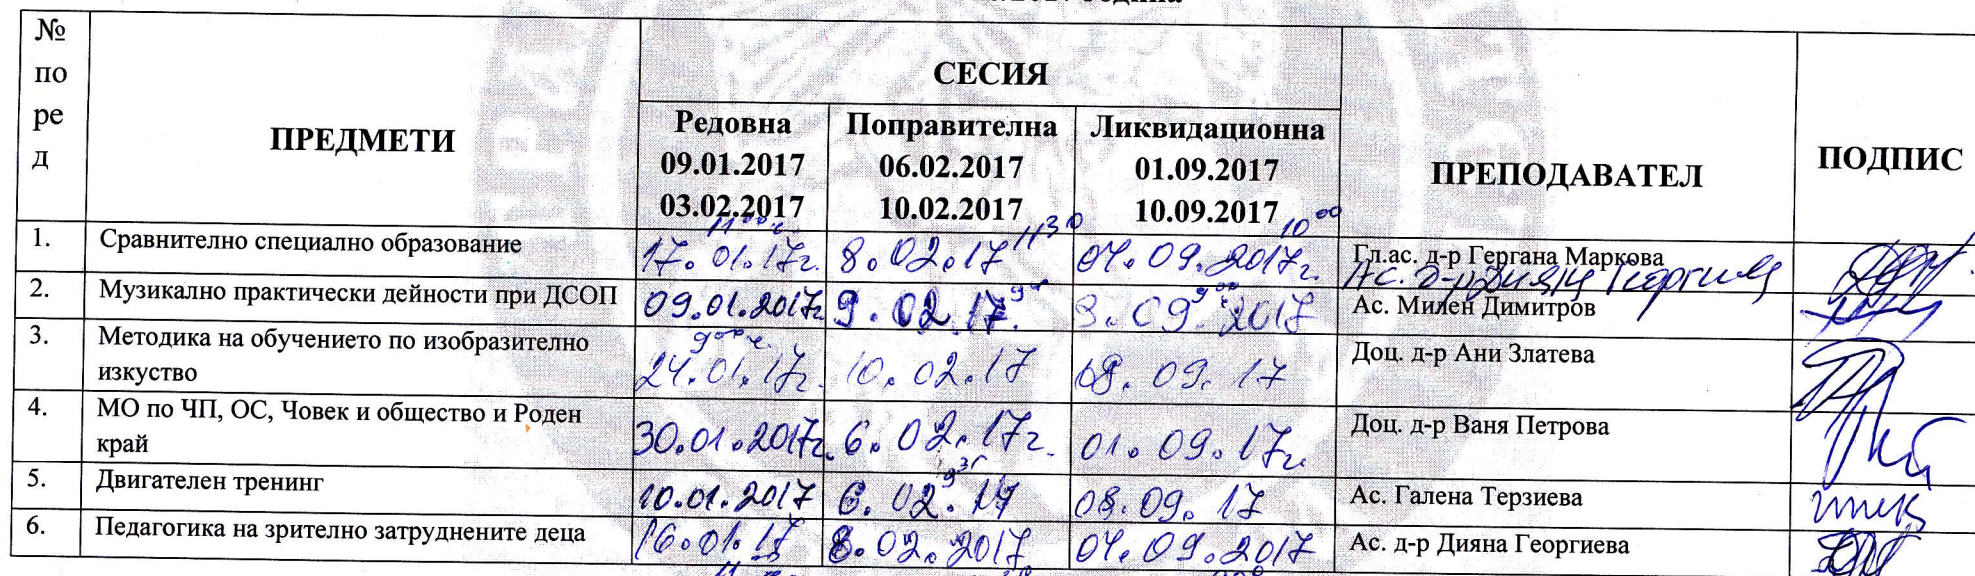 № по ред
ПРЕДМЕТИ
СЕСИЯ
ПРЕПОДАВАТЕЛ
ПОДПИС
Редовна
09.01.2017
03.02.2017
Поправителна
06.02.2017
10.02.2017
Ликвидационна
01.09.2017
10.09.2017
1. Сравнително специално образование 17.01.17г. 11⁰⁰ч. 8.02.17 11³⁰ 04.09.2017г. 10⁰⁰ Гл.ас. д-р Гергана Маркова
Ас. д-р Дияна Георгиева
2. Музикално практически дейности при ДСОП 09.01.2017г. 9.02.17. 9.09.2017 Ас. Милен Димитров
3. Методика на обучението по изобразително изкуство 24.01.17г. 9⁰⁰ч. 10.02.17 08.09.17 Доц. д-р Ани Златева
4. МО по ЧП, ОС, Човек и общество и Роден край 30.01.2017г. 6.02.17г. 01.09.17г. Доц. д-р Ваня Петрова
5. Двигателен тренинг 10.01.2017 6.02.17 9³⁰ 08.09.17 Ас. Галена Терзиева
6. Педагогика на зрително затруднените деца 16.01.17 8.02.2017 04.09.2017 Ас. д-р Дияна Георгиева